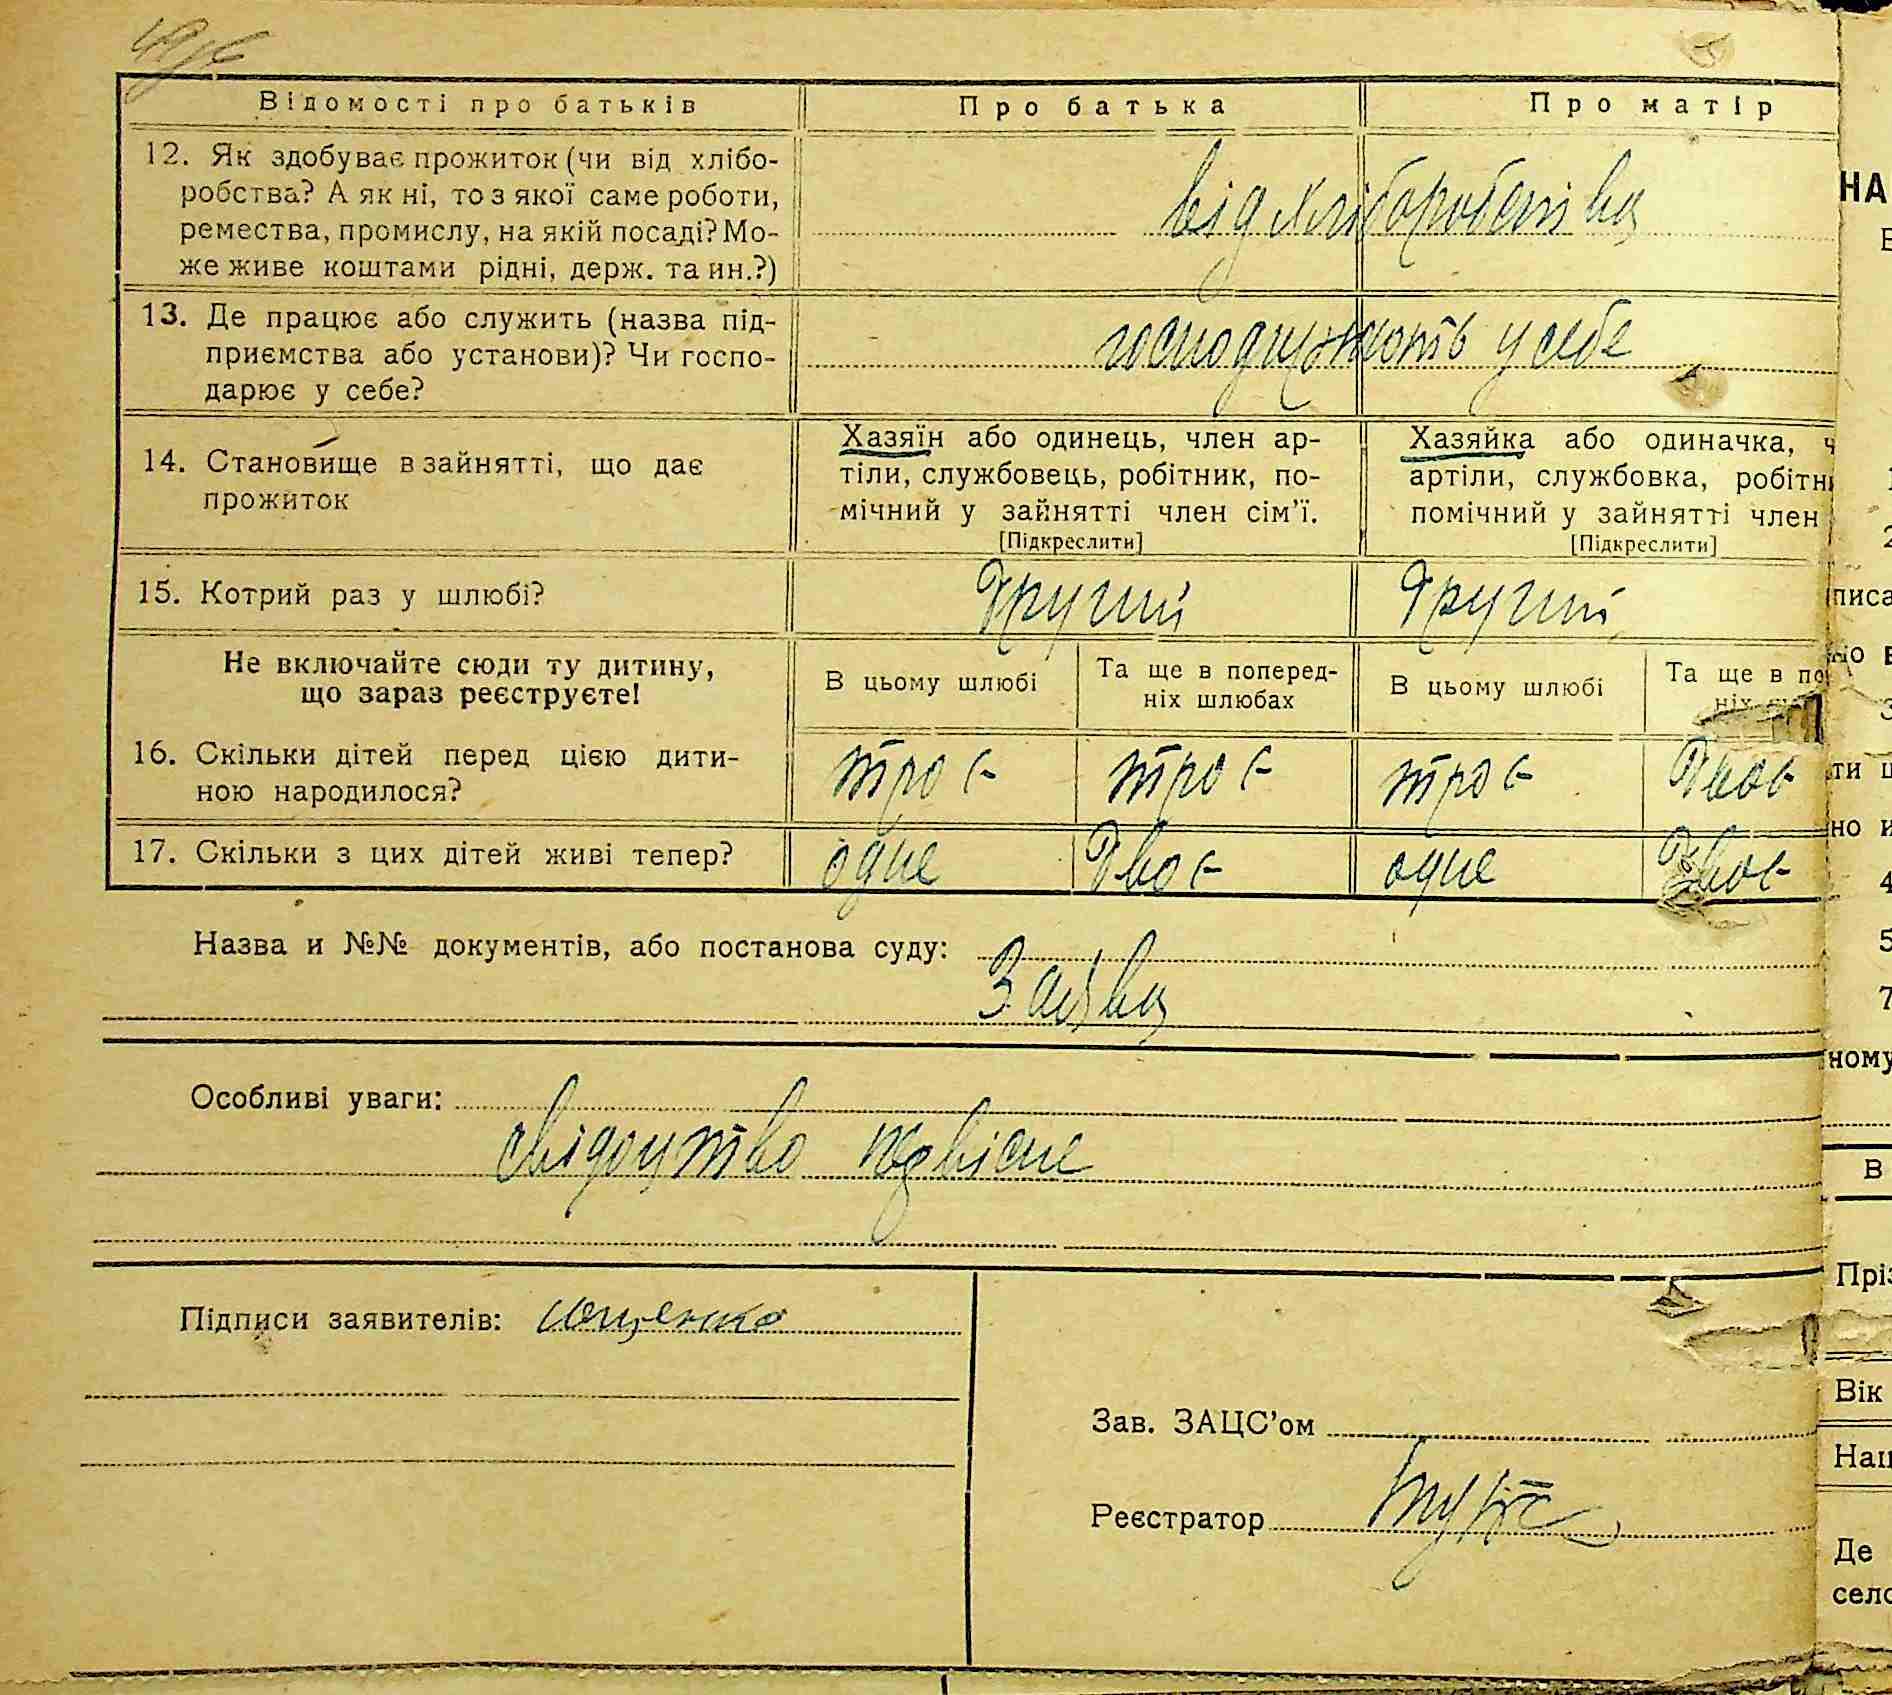 Відомості про батьків Про батька Про матір
12. Як здобуває прожиток (чи від хлібо-
робства? А як ні, то з якої саме роботи,
ремества, промислу, на якій посаді? Мо-
же живе коштами рідні, держ. та ин.?)
від хліборобства
13. Де працює або служить (назва під-
приємства або установи)? Чи госпо-
дарює у себе?
господарюють у себе
14. Становище в зайнятті, що дає
прожиток
Хазяїн або одинець, член ар-
тіли, службовець, робітник, по-
мічний у зайнятті член сім'ї.
[Підкреслити]
Хазяйка або одиначка, ч
артіли, службовка, робітн
помічний у зайнятті член
[Підкреслити]
15. Котрий раз у шлюбі? другий другий
Не включайте сюди ту дитину,
що зараз реєструєте!
В цьому шлюбі
Та ще в поперед-
ніх шлюбах
В цьому шлюбі
Та ще в по
ніх
16. Скільки дітей перед цією дити-
ною народилося?
троє троє троє двоє
17. Скільки з цих дітей живі тепер? одне двоє одне двоє
Назва и №№ документів, або постанова суду:
Заява
Особливі уваги:
свідоцтво
Підписи заявителів: Ющенко
Зав. ЗАЦС'ом
Реєстратор
НА
писа
но в
ти
но и
4
5
7
ному
В
Пріз
Вік
Нац
Де
село